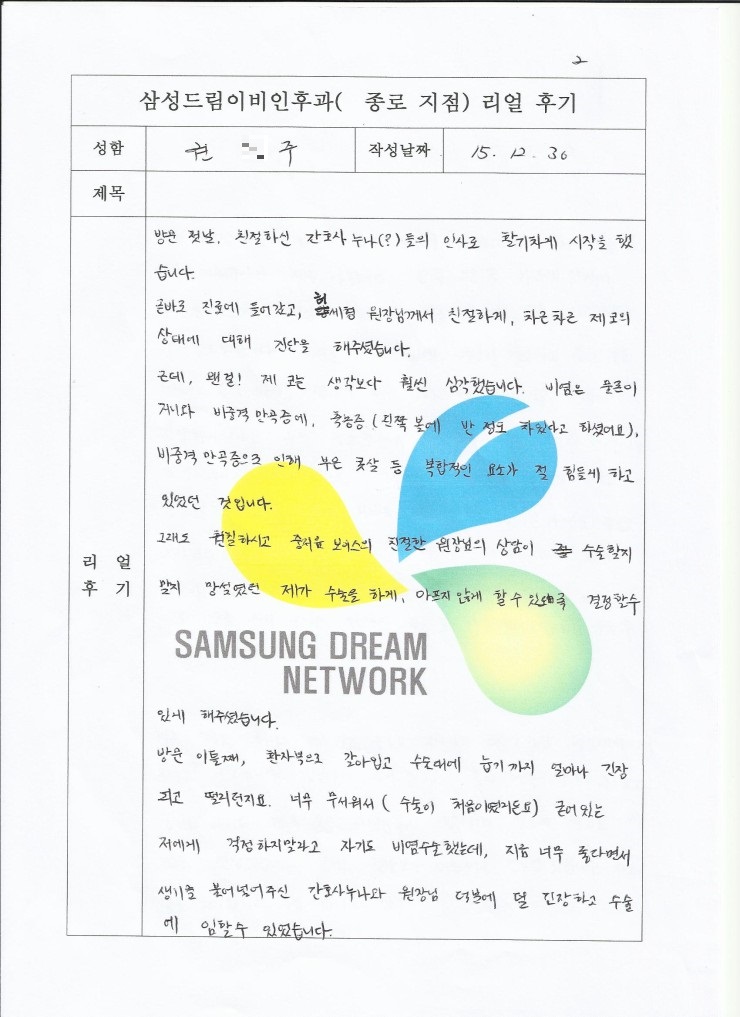 2
삼성드림이비인후과( 종로 지점) 리얼 후기
성함 권 주 작성날짜 15. 12. 30
제목
리 얼
후 기
방문 첫날, 친절하신 간호사 누나(?)들의 인사로 활기차게 시작을 했
습니다.
곧바로 진료에 들어갔고, 허세형 원장님께서 친절하게, 차근차근 제 코의
상태에 대해 진단을 해주셨습니다.
근데, 웬걸! 제 코는 생각보다 훨씬 심각했습니다. 비염은 물론이
거니와 비중격 만곡증에, 축농증 (왼쪽 볼에 반 정도 차있다고 하셨어요),
비중격 만곡증으로 인해 부은 콧살 등 복합적인 요소가 절 힘들게 하고
있었던 것입니다.
그래도 훤칠하시고 중저음 보이스의 친절한 원장님의 상담이 수술할지
말지 망설였던 제가 수술을 하게, 아프지 않게 할 수 있게끔 결정할수
SAMSUNG DREAM
NETWORK
있게 해주셨습니다.
방문 이틀째, 환자복으로 갈아입고 수술대에 눕기 까지 얼마나 긴장
되고 떨리던지요. 너무 무서워서 ( 수술이 처음이였거든요) 굳어 있는
저에게 걱정하지말라고 자기도 비염수술했는데, 지금 너무 좋다면서
생기를 불어넣어주신 간호사누나와 원장님 덕분에 덜 긴장하고 수술
에 임할수 있었습니다.